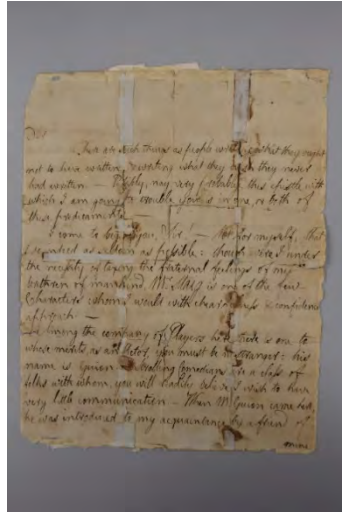 There are such things as people
not to have written, & writing what they wish they never
had written. — Possibly, nay very probably, this epistle, with
which I am going to trouble you is in one, or both of
these predicaments —
I come to beg of you, Sir! — Not for myself, that
as seldom as possible: though were I under
the necessity of taxing the fraternal feelings of my
brethren of mankind, Mr. is one of the few
Characters whom I would with & confidence
approach —
the company of Players here, there is one to
whose merits, as an Actor, you must be no stranger: his
name is Guion — Strolling Comedians are a class of
folks with whom, you will readily believe I wish to have
very little communication — When Mr Guion came here,
he was introduced to my acquaintance by a friend of
mine